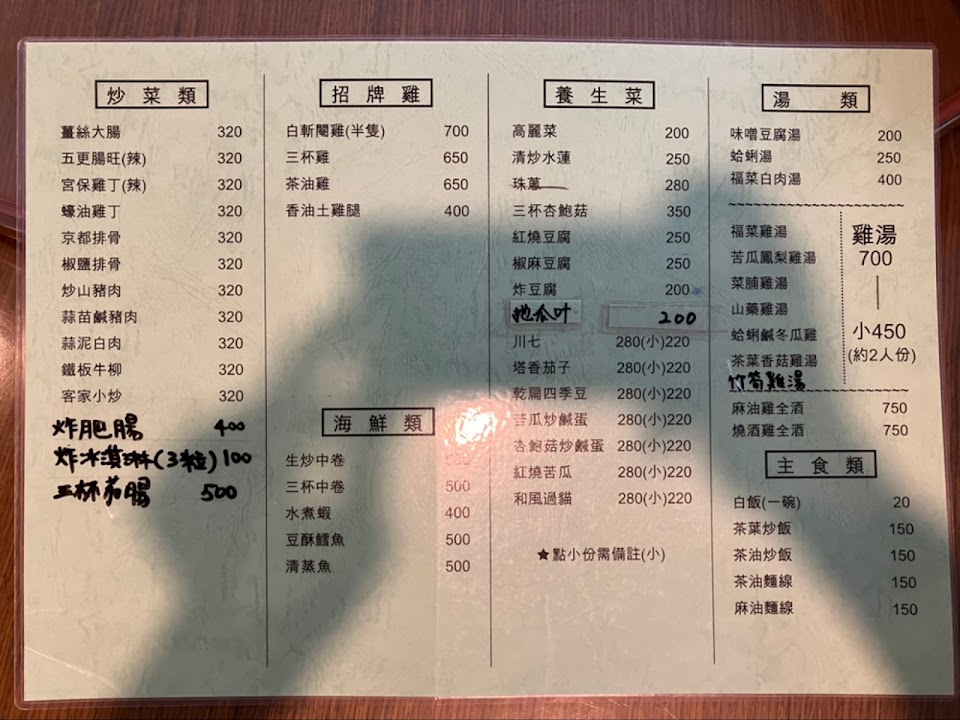 炒菜類
薑絲大腸 320
五更腸旺(辣) 320
宮保雞丁(辣) 320
蠔油雞丁 320
京都排骨 320
椒鹽排骨 320
炒山豬肉 320
蒜苗鹹豬肉 320
蒜泥白肉 320
鐵板牛柳 320
客家小炒 320
炸肥腸 400
炸冰淇淋(3粒)100
三杯肥腸 500
招牌雞
白斬閹雞(半隻) 700
三杯雞 650
茶油雞 650
香油土雞腿 400
海鮮類
生炒中卷
三杯中卷 500
水煮蝦 400
豆酥鱈魚 500
清蒸魚 500
養生菜
高麗菜 200
清炒水蓮 250
珠蔥 280
三杯杏鮑菇 350
紅燒豆腐 250
椒麻豆腐 250
炸豆腐 200
地瓜叶 200
川七 280(小)220
塔香茄子 280(小)220
乾扁四季豆 280(小)220
苦瓜炒鹹蛋 280(小)220
杏鮑菇炒鹹蛋 280(小)220
紅燒苦瓜 280(小)220
和風過貓 280(小)220
★點小份需備註(小)
湯類
味噌豆腐湯 200
蛤蜊湯 250
福菜白肉湯 400
福菜雞湯
苦瓜鳳梨雞湯
菜脯雞湯
山藥雞湯
蛤蜊鹹冬瓜雞
茶葉香菇雞湯
竹筍雞湯
雞湯
700
|
小450
(約2人份)
麻油雞全酒 750
燒酒雞全酒 750
主食類
白飯(一碗) 20
茶葉炒飯 150
茶油炒飯 150
茶油麵線 150
麻油麵線 150